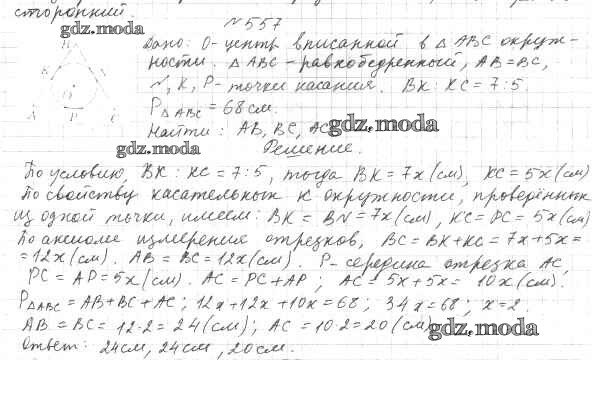 сторонний.
gdz.moda
№557
B
Дано: O-центр вписанной в △ABC окруж-
ности. △ABC - равнобедренный, AB=BC,
N, K, P - точки касания. BK:KC=7:5.
P△ABC = 68 см.
Найти: AB, BC, AC
gdz.moda
A P C
gdz.moda
Решение.
По условию, BK:KC=7:5, тогда BK=7x(см), KC=5x(см)
По свойству касательных к окружности, проведённых
из одной точки, имеем: BK=BN=7x(см), KC=PC=5x(см)
По аксиоме измерения отрезков, BC=BK+KC=7x+5x=
=12x(см). AB=BC=12x(см). P-середина отрезка AC,
PC=AP=5x(см). AC=PC+AP; AC=5x+5x=10x(см).
P△ABC=AB+BC+AC; 12x+12x+10x=68; 34x=68; x=2
AB=BC=12·2=24(см); AC=10·2=20(см)
gdz.moda
Ответ: 24см, 24см, 20см.